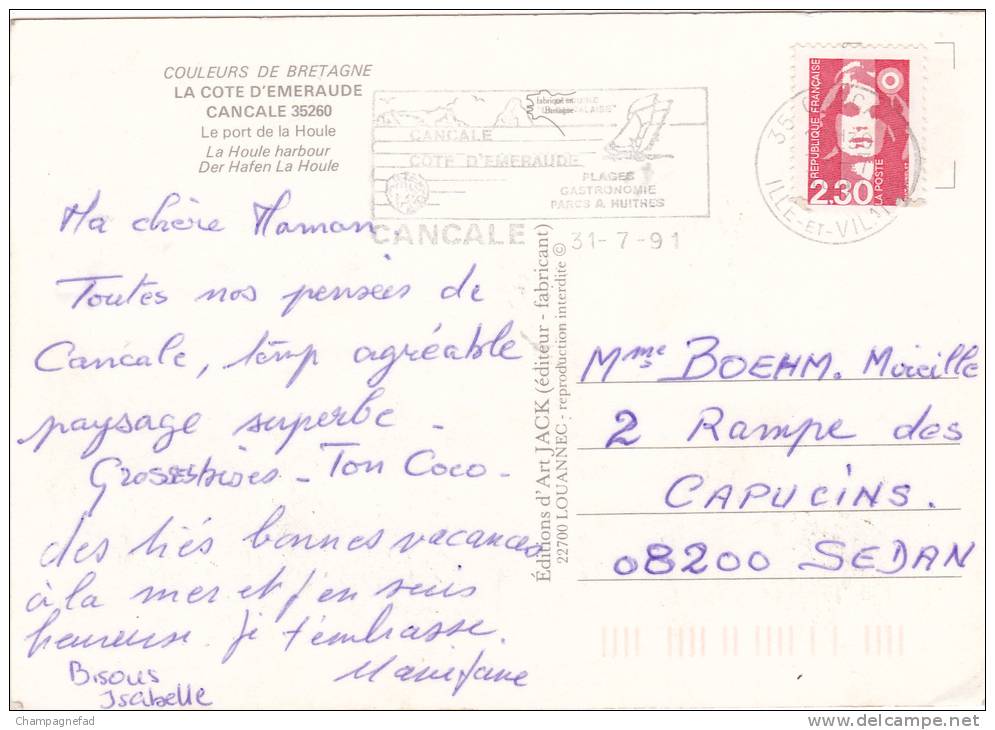 COULEURS DE BRETAGNE
LA COTE D'EMERAUDE
CANCALE 35260
Le port de la Houle
La Houle harbour
Der Hafen La Houle
fabriqué en
Bretagne
CANCALE
COTE D'EMERAUDE
PLAGES
GASTRONOMIE
PARCS A HUITRES
CANCALE 31-7-91
35
ILLE-ET-VIL
REPUBLIQUE FRANÇAISE
2.30
LA POSTE
Ma chère Maman.
Toutes nos pensées de
Cancale, temp agréable
paysage superbe -
Grosses bises - Ton Coco -
des très bonnes vacances
à la mer et j'en suis
heureuse. Je t'embrasse.
Mariejane
Bisous
Isabelle
Éditions d'Art JACK (éditeur - fabricant)
22700 LOUANNEC - reproduction interdite ©
Mme BOEHM. Mireille
2 Rampe des
CAPUCINS.
08200 SEDAN
Champagnefad
www.delcampe.net